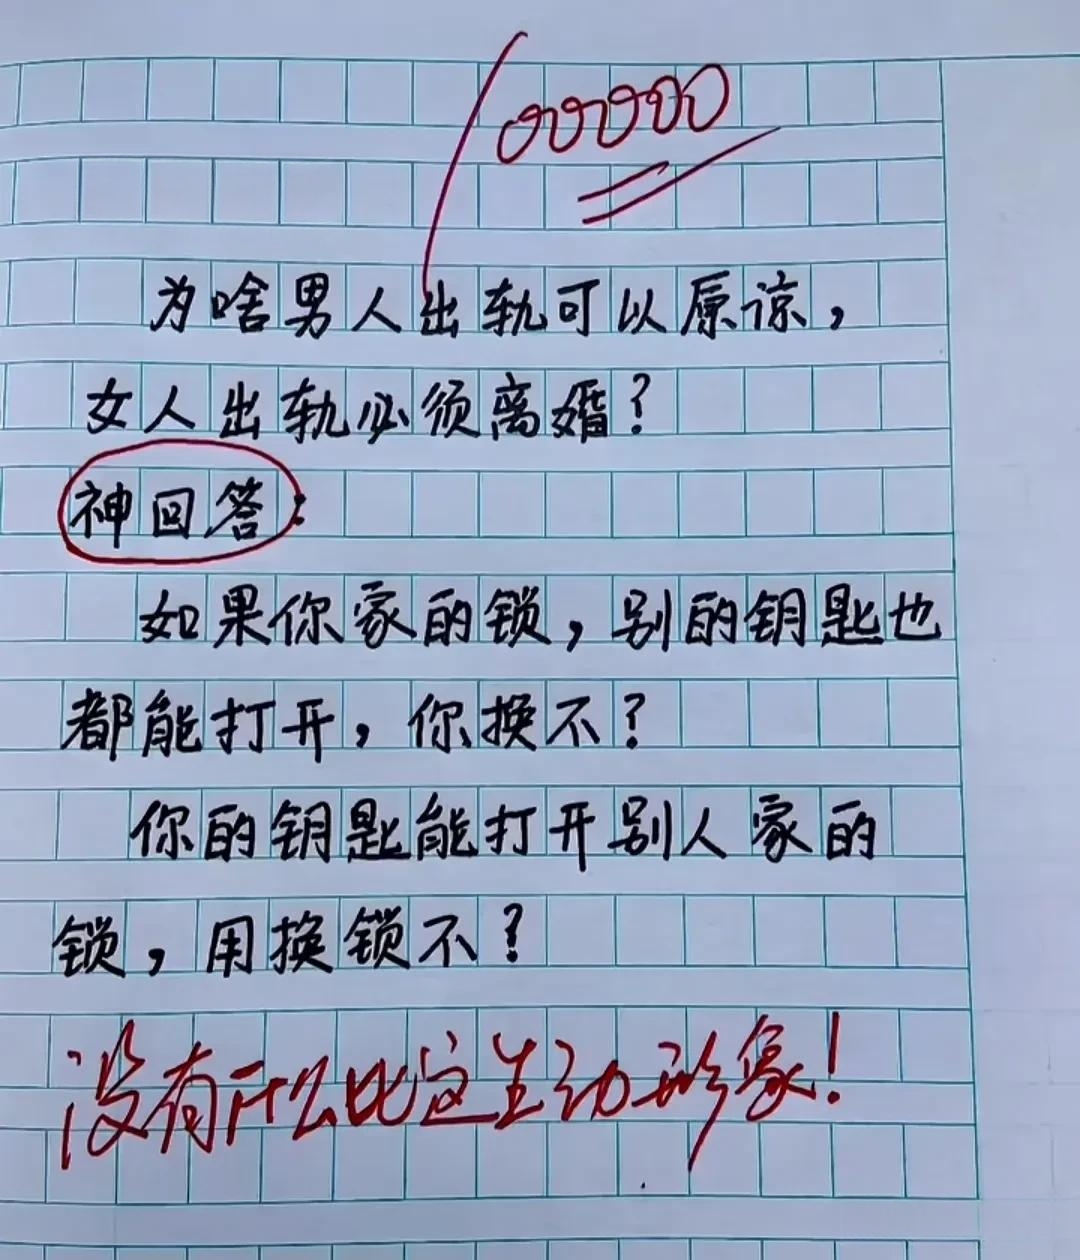 100000
为啥男人出轨可以原谅，
女人出轨必须离婚？
神回答：
如果你家的锁，别的钥匙也
都能打开，你换不？
你的钥匙能打开别人家的
锁，用换锁不？
没有什么比这生动形象！